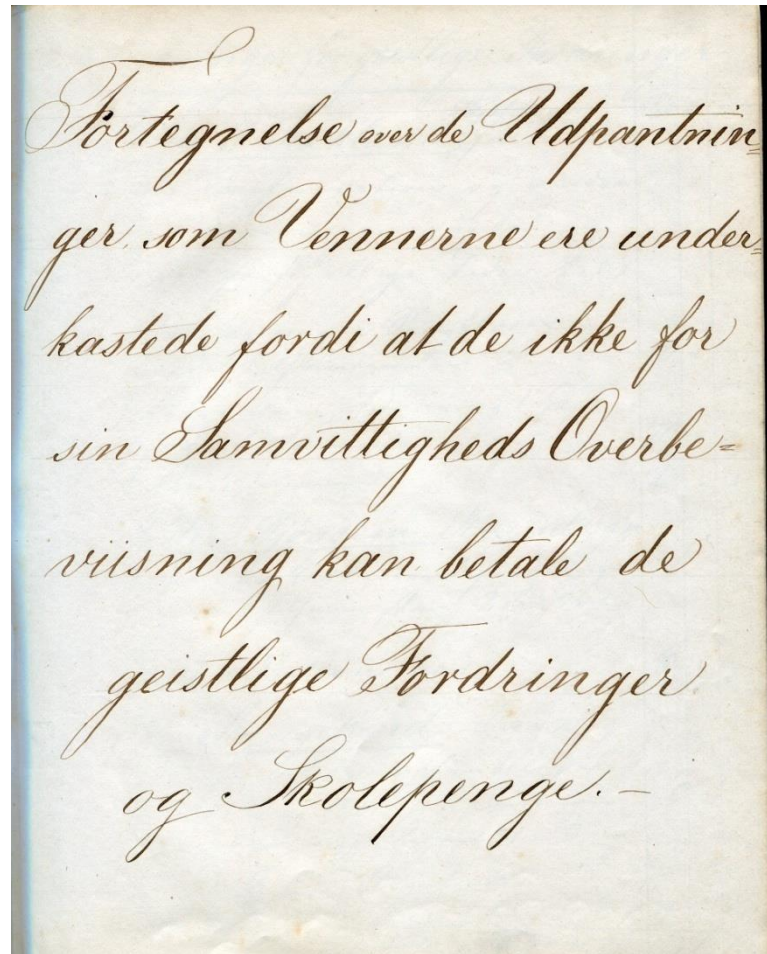 Fortegnelse over de Udpantnin=
ger som Vennerne ere under=
kastede fordi at de ikke for
sin Samvittigheds Overbe=
viisning kan betale de
geistlige Fordringer
og Skolepenge. –